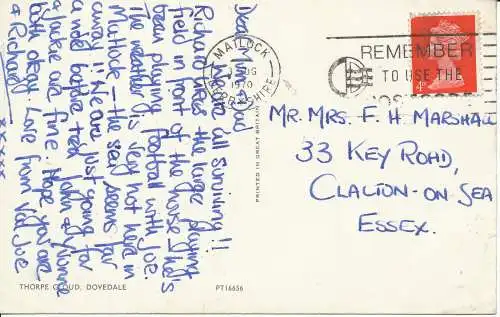 Dear Mum & Dad
We are all surviving !!
Richard likes the large playing
field in front of the house & he's
been playing football with Joe.
The weather is very hot here in
Matlock – the sea seems far
away!! We are just going for
a ride before tea. John & Yvonne
& Jackie are fine. Hope you are
both okay. Love from Val Joe
& Richard
xxxxxx
MATLOCK
AUG
1970
DERBYSHIRE
REMEMBER
TO USE THE
POSTCODE
4D
MR. MRS. F. H. MARSHALL
33 KEY ROAD,
CLACTON-ON-SEA
ESSEX.
PRINTED IN GREAT BRITAIN
THORPE CLOUD, DOVEDALE
PT16656